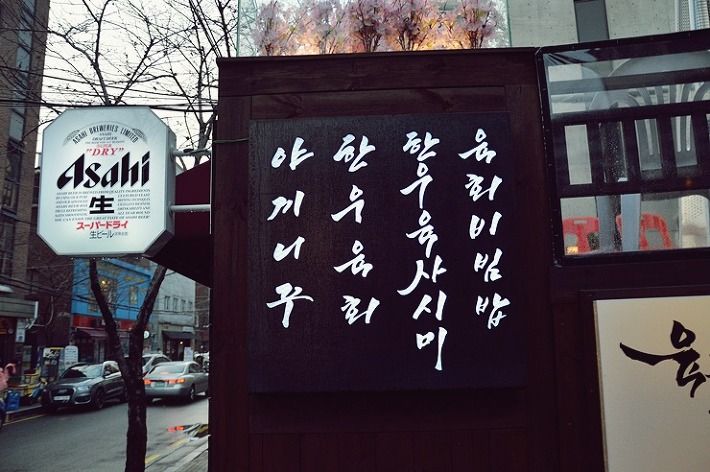 ASAHI BREWERIES LIMITED
"DRY"
Asahi
生
スーパードライ
生ビール
야끼니꾸
한우육회
한우육사시미
육회비빔밥
육